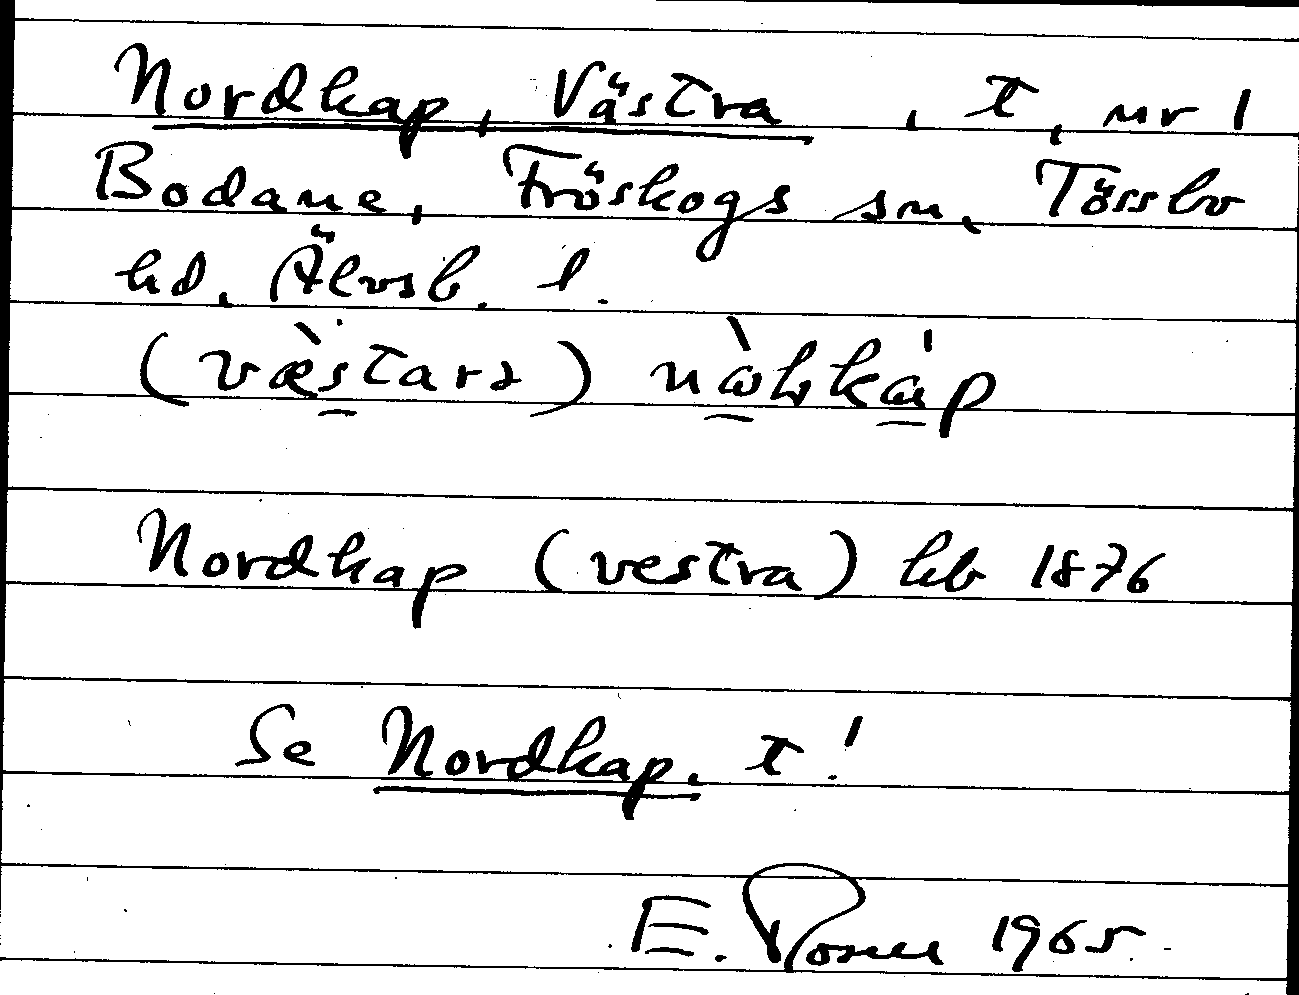 Nordkap, Västra, t, nr 1
Bodane, Fröskogs sn, Tössbo
hd, Älvsb. l.
Nordkap (vestra) hb 1876
Se Nordkap, t!
E. Rosell 1965